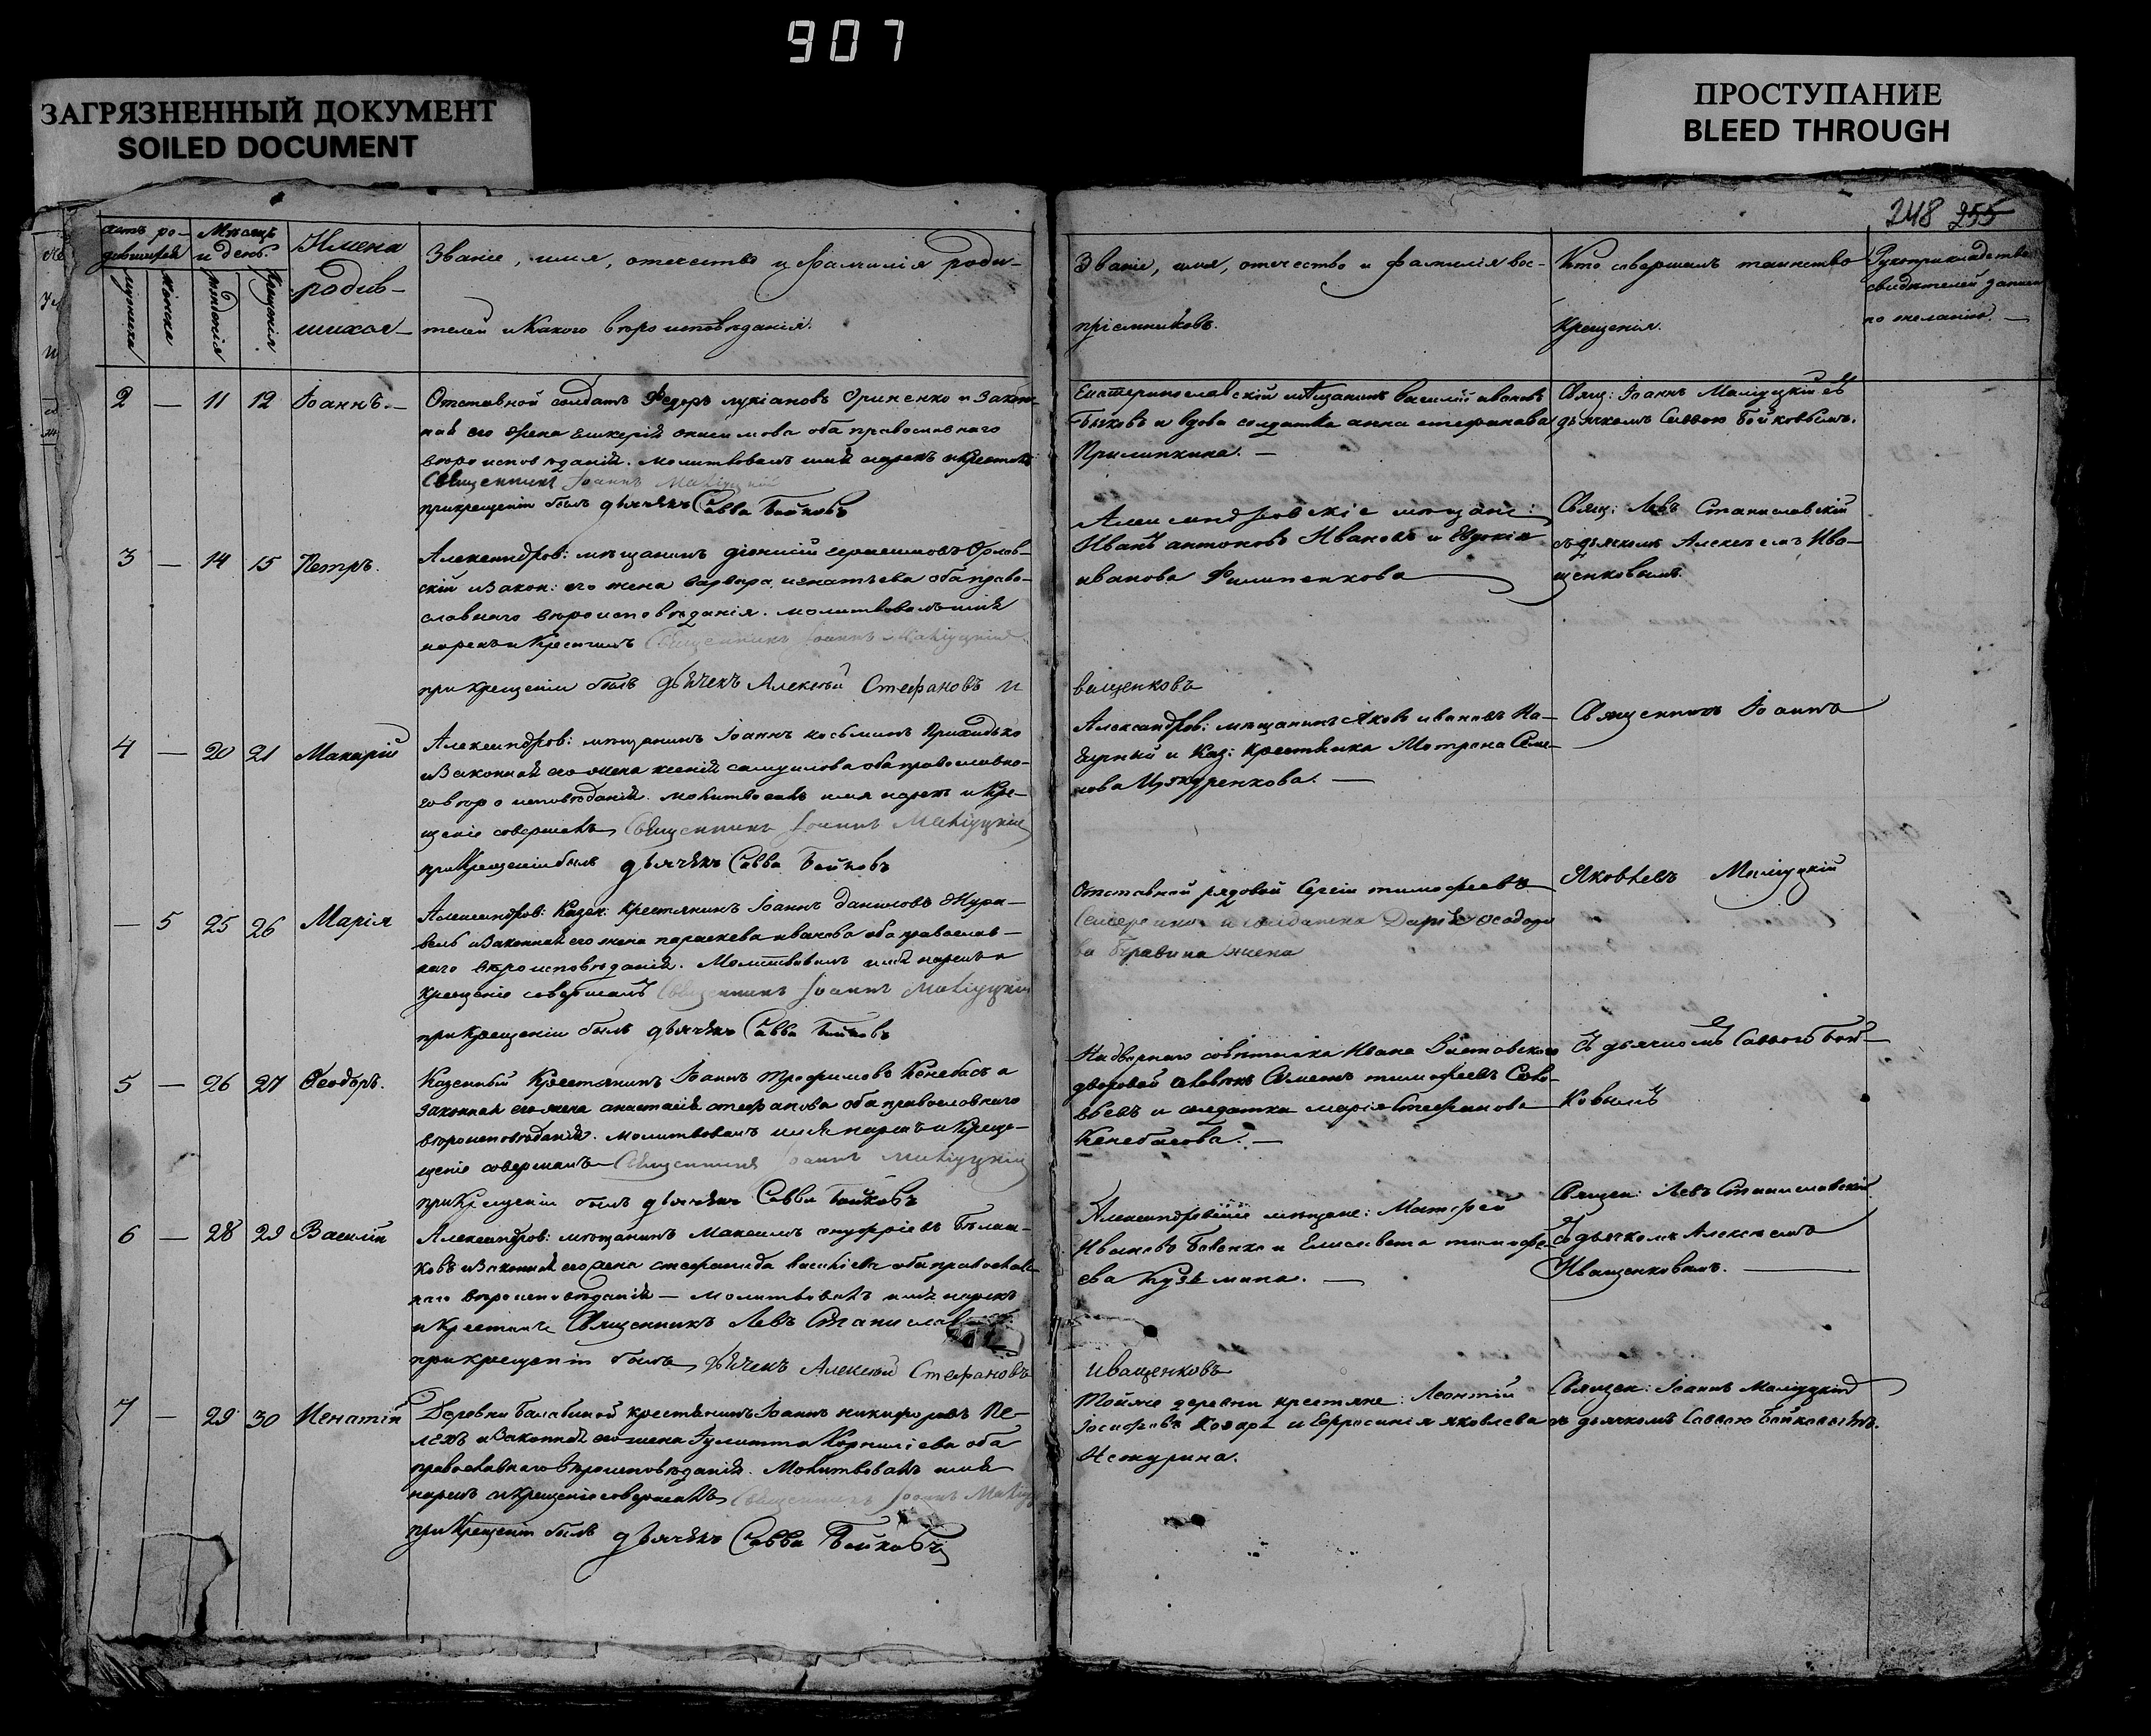 907
ЗАГРЯЗНЕННЫЙ ДОКУМЕНТ
SOILED DOCUMENT
ПРОСТУПАНИЕ
BLEED THROUGH
248 255
Мѣсяцъ
и день.
Имена
родив-
шихся
мужеска
женска
рожденія
крещенія.
Званіе, имя, отечество и фамилія роди-
телей и какого вѣроисповѣданія.
Званіе, имя, отечество и фамилія вос-
пріемниковъ.
Кто совершалъ таинство
крещенія.
Рукоприкладство
свидѣтелей записи
по желанію.
2 — 11 12 Іоаннъ.
Отставной солдатъ Федоръ лукіановъ Гриненко и закон-
ная его жена онисимова оба православнаго
вѣроисповѣданія. Молитвовалъ имя нарекъ и крестилъ
Священникъ Іоаннъ Маліуцкій
при крещеніи былъ дьячекъ Савва Бойковъ
Екатеринославскій мѣщанинъ василій ивановъ
Быковъ и вдова солдатка анна стефанова
Прилипкина. —
Свящ: Іоаннъ Маліуцкій съ
дьячкомъ Саввою Бойковымъ.
3 — 14 15 Петръ.
Александров: мѣщанинъ діонисій Орлов-
скій и закон: его жена варвара игнатьева оба право-
славнаго вѣроисповѣданія. молитвовалъ имя
нарекъ и крестилъ Священникъ Іоаннъ Маліуцкій
при крещеніи былъ дьячекъ Алексѣй Стефановъ И
Александровскіе мѣщане:
Иванъ антоновъ Ивановъ и Евдокія
иванова Филипенкова
ващенковъ
Свящ: Левъ Станиславскій
съ дьячкомъ Алексѣемъ Ива-
щенковымъ.
4 — 20 21 Макарій
Александров: мѣщанинъ Іоаннъ косьминъ Приходько
и законная его жена ксенія самуилова оба православна-
го вѣроисповѣданія. молитвовалъ имя нарекъ и кре-
щеніе совершалъ Священникъ Іоаннъ Маліуцкій
при крещеніи былъ дьячекъ Савва Бойковъ
Александров: мѣщанинъ Яковъ ивановъ На-
и Каз: крестьянка Матрона Семе-
нова —
Священникъ Іоаннъ
— 5 25 26 Марія
Александров: Казен: крестьянинъ Іоаннъ даниловъ Жура-
вель и законная его жена параскева иванова оба православ-
наго вѣроисповѣданія. Молитвовалъ имя нарекъ и
крещеніе совершалъ Священникъ Іоаннъ Маліуцкій
при крещеніи былъ дьячекъ Савва Бойковъ
Отставной рядовой Сергій тимофеевъ
и солдатка Дарія
жена
Яковлевъ Маліуцкій
5 — 26 27 Феодоръ.
Казенный Крестьянинъ Іоаннъ трофимовъ Кенебасъ и
законная его жена анастасія стефанова оба православнаго
вѣроисповѣданія. молитвовалъ имя нарекъ и креще-
щеніе совершалъ Священникъ Іоаннъ Маліуцкій
при крещеніи былъ дьячекъ Савва Бойковъ
Надворнаго совѣтника Ивана
дворовой человѣкъ Семенъ тимофеевъ Соло-
вьевъ и солдатка марія Стефанова
Кенебасова. —
съ дьячкомъ Саввою Бой-
ковымъ
6 — 28 29 Василій
Александров: мѣщанинъ Максимъ онуфріевъ
и законная его жена стефанида васильева оба православ-
наго вѣроисповѣданія — молитвовалъ имя нарекъ
и крестилъ Священникъ Левъ Станислав
при крещеніи былъ дьячекъ Алексѣй Стефановъ
Александровскіе мѣщане: Матфей
Ивановъ и Елисавета тимофе-
ева Кузьмина. —
иващенковъ
Священ: Левъ Станиславскій
съ дьячкомъ Алексѣемъ
Иващенковымъ.
7 — 29 30 Игнатій
Деревни Балабиной крестьянинъ Іоаннъ никифоровъ Пе-
лехъ и законная его жена Іулитта Корнилiева оба
православнаго вѣроисповѣданія. Молитвовалъ имя
нарекъ и крещеніе совершалъ Священникъ Іоаннъ
при крещеніи былъ дьячекъ Савва Бойковъ
Тойже деревни крестьяне: Леонтій
Іосифовъ и Евфросинія яковлева
Священ: Іоаннъ Маліуцкій
съ дьячкомъ Саввою Бойковымъ.